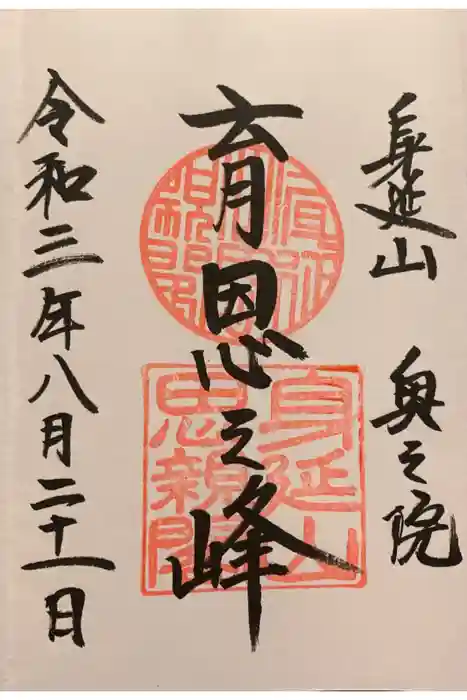 身延山 奥之院
育恩之峰
令和三年八月二十一日
身延山
思親閣